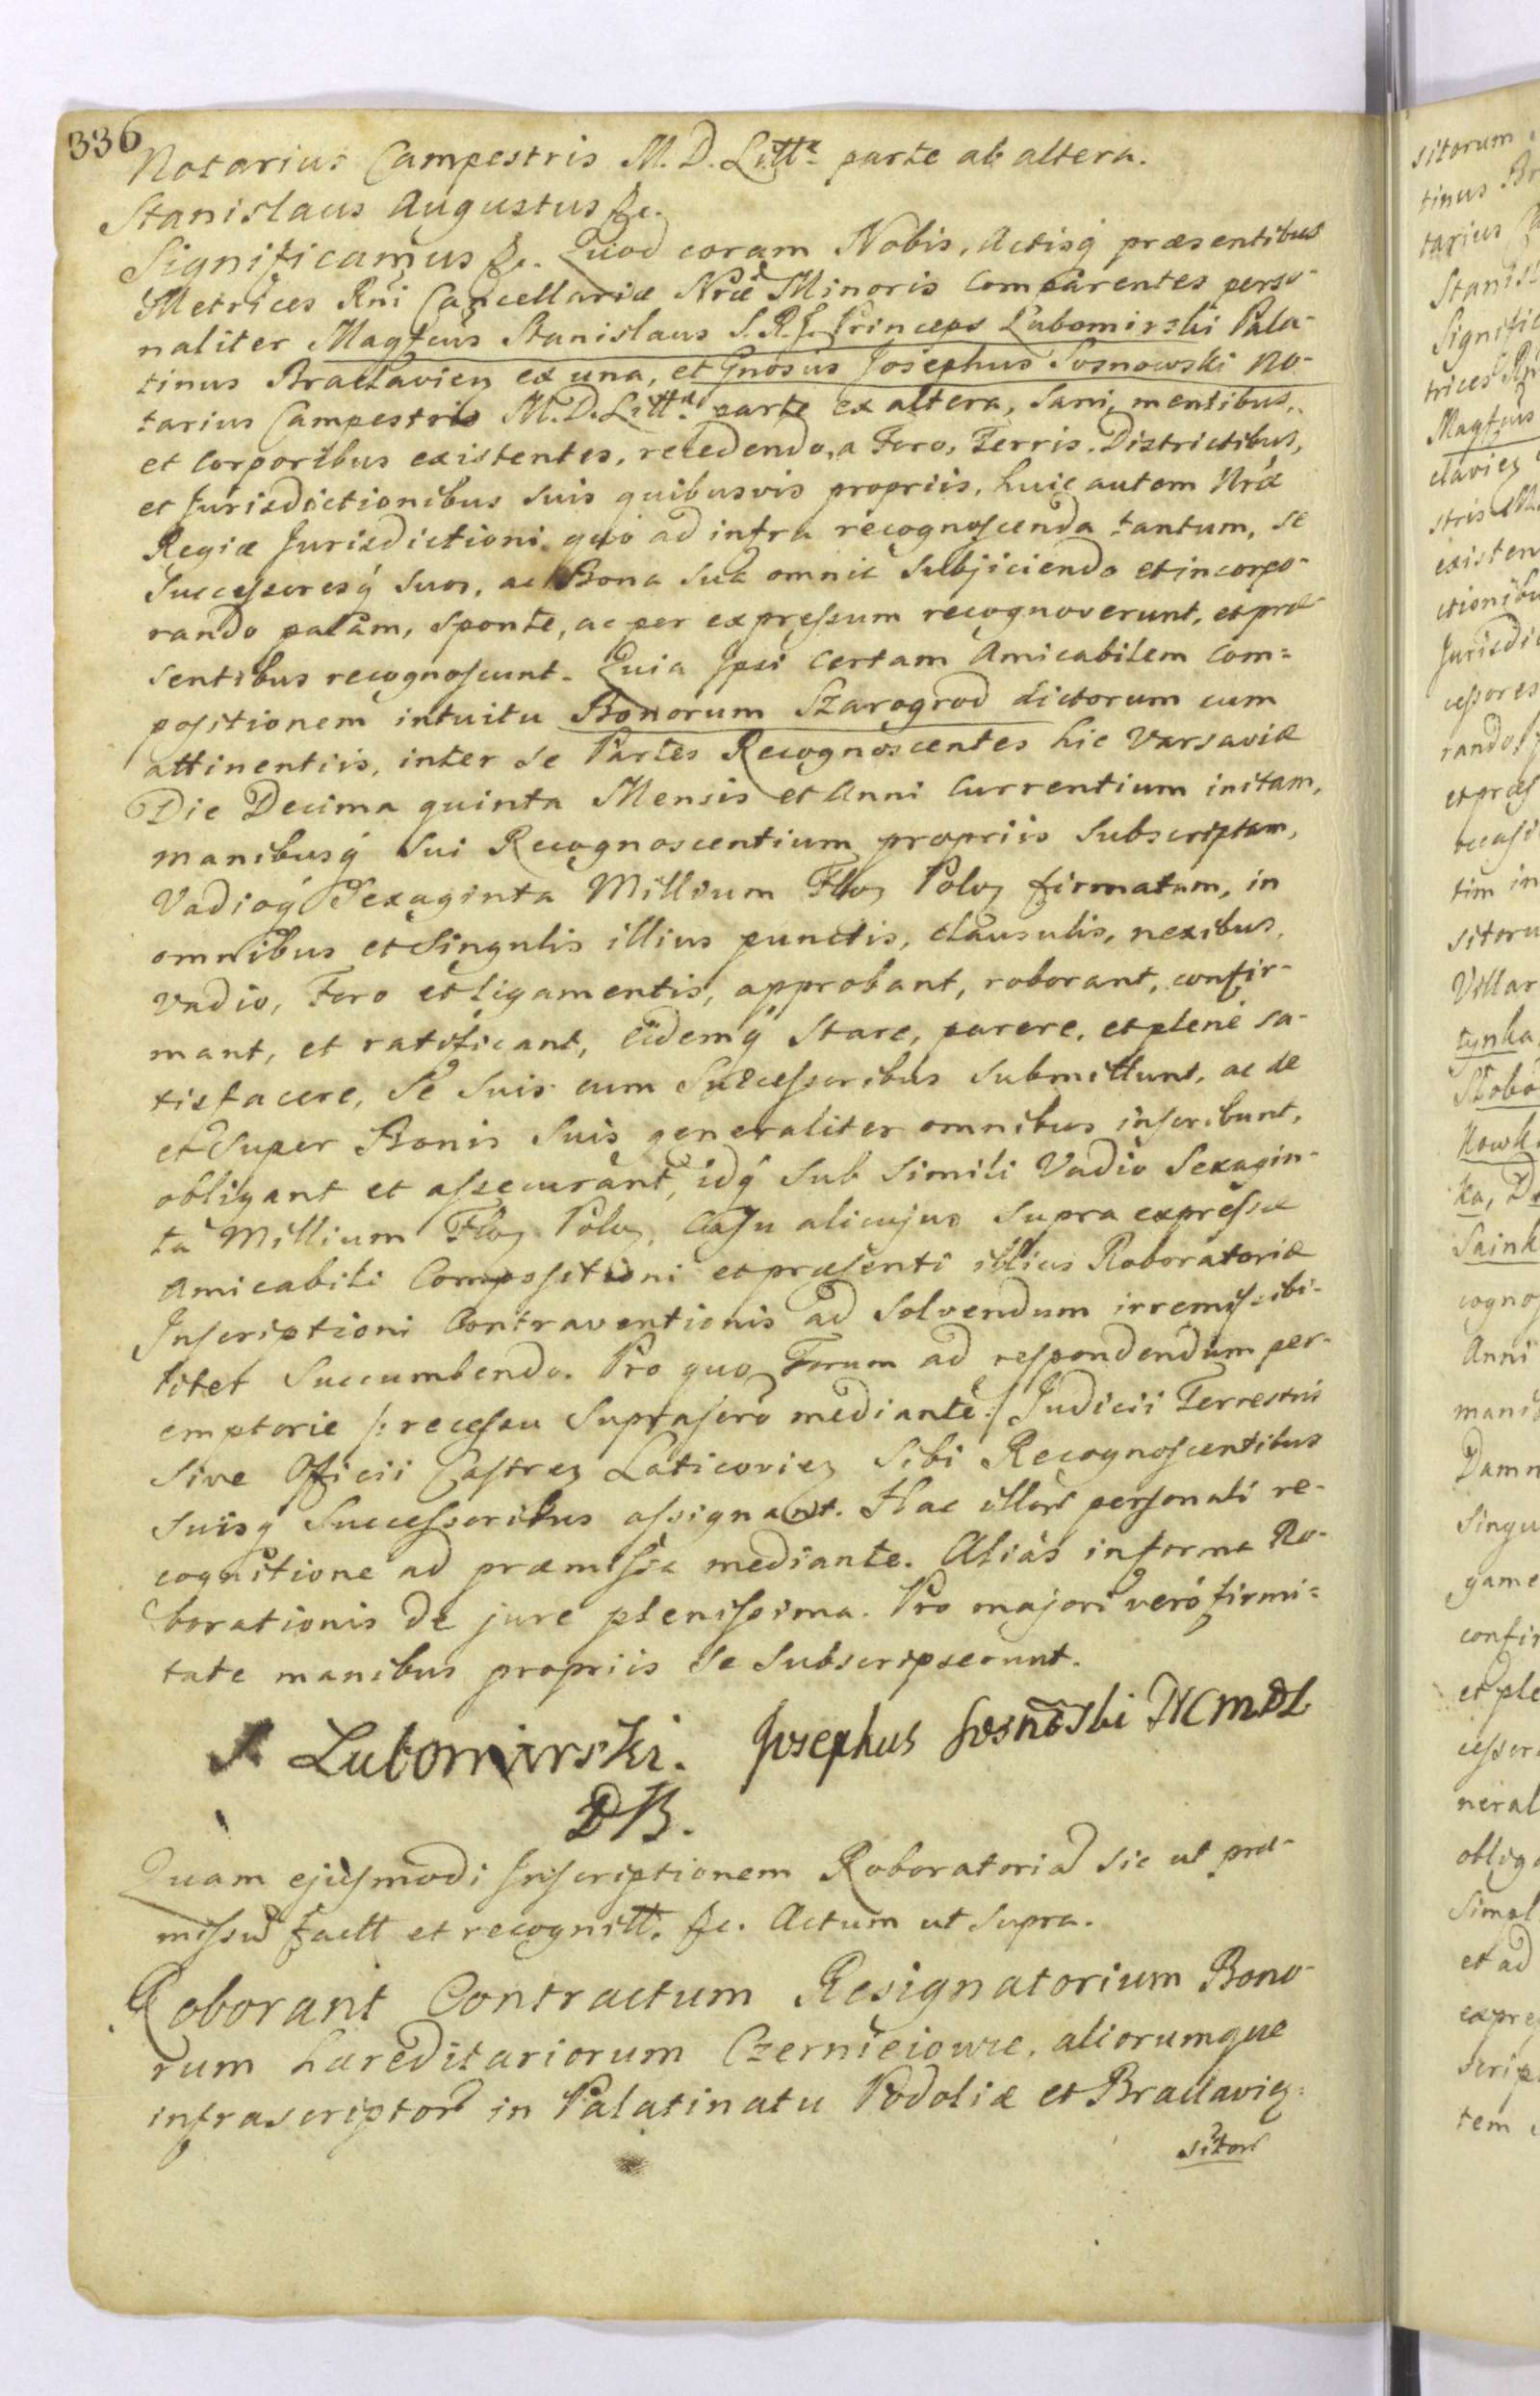 336
Notarius Campestris M. D. Litt. parte ab altera.
Stanislaus Augustus &c.
Significamus &c. Quod coram Nobis, Actisq́ præsentibus
Metrices Rni Cancellariæ Nræ Minoris Comparentes perso-
naliter Magfcus Stanislaus S. R. I. Princeps Lubomirski Pala-
tinus Braclavien ex una, et Gnosus Josephus Sosnowski No-
tarius Campestris M. D. Litt. parte ex altera, Sani, mentibus,
et Corporibus existentes, recedendo, a Foro, Terris, Districtibus,
et Jurisdictionibus Suis quibusvis propriis, huic autem Nræ
Regiæ Jurisdictioni quò ad infra recognoscenda tantum, se
Successoresq́ Suos, ac Bona Sua omnia Subjiciendo et incorpo-
rando palàm, sponte, ac per expressum recognoverunt, et præ-
sentibus recognoscunt. Quia Ipsi Certam Amicabilem Com=
positionem intuitu Bonorum Szarogrod dictorum cum
attinentiis, inter se Partes Recognoscentes hic Varsaviæ
Die Decima quinta Mensis et Anni Currentium initam,
manibusq́ Sui Recognoscentium propriis Subscriptam,
Vadioq́ Sexaginta Millium Flloꝝ Poloꝝ firmatam, in
omnibus et Singulis illius punctis, clausulis, nexibus,
vadio, Foro et ligamentis, approbant, roborant, confir-
mant, et ratificant, eidemq́ Stare, parere, et plenè sa-
tisfacere, Se Suis cum Successoribus submittunt, ac de
et Super Bonis Suis generaliter omnibus inscribunt,
obligant et assecurant, idq́ Sub Simili Vadio Sexagin-
ta Millium Floꝝ Poloꝝ, Casu alicujus Supra expressæ
Amicabili Compositioni et præsenti illius Roboratoriæ
Inscriptioni Contraventionis ad Solvendum irremissibi-
liter Succumbendo. Pro quo Forum ad respondendum per-
emptorie /: recessu Suprafero mediante :/ Judicii Terrestris
Sive Officii Castren Laticovien Sibi Recognoscentibus
Suisq́ Successoribus assignant. Hac illor personali re-
cognitione ad præmissa mediante. Aliàs in forma Ro-
borationis de jure plenissima. Pro majori verò firmi=
tate manibus propriis Se Subscripserunt.
S Lubomirski. Josephus Sosnoski NCMDL
DB.
Quam ejusmodi Inscriptionem Roboratoria Sic ut præ-
missu factt et recognitt. &c. Actum ut Supra.
Roborant Contractum Resignatorium Bono-
rum hæreditariorum Czernieiowce, aliorumque
infrascriptor in Palatinatu Podoliæ et Braclavien
sitor
sitorum
tinus Br
tarius Ca
Stanis
Signific
trices Rn
Magfcus
clavien
stris M
existen
ctionibu
Jurisdic
cessores
rando,
et præs
occasi
tim in
sitoru
Villar
tynka
Stobo
Nowk
ka, D
Saink
cogno
Anni
manib
Damn
Singu
game
confir
et ple
cessor
neral
obliga
Simil
et ad
expre
Script
tem